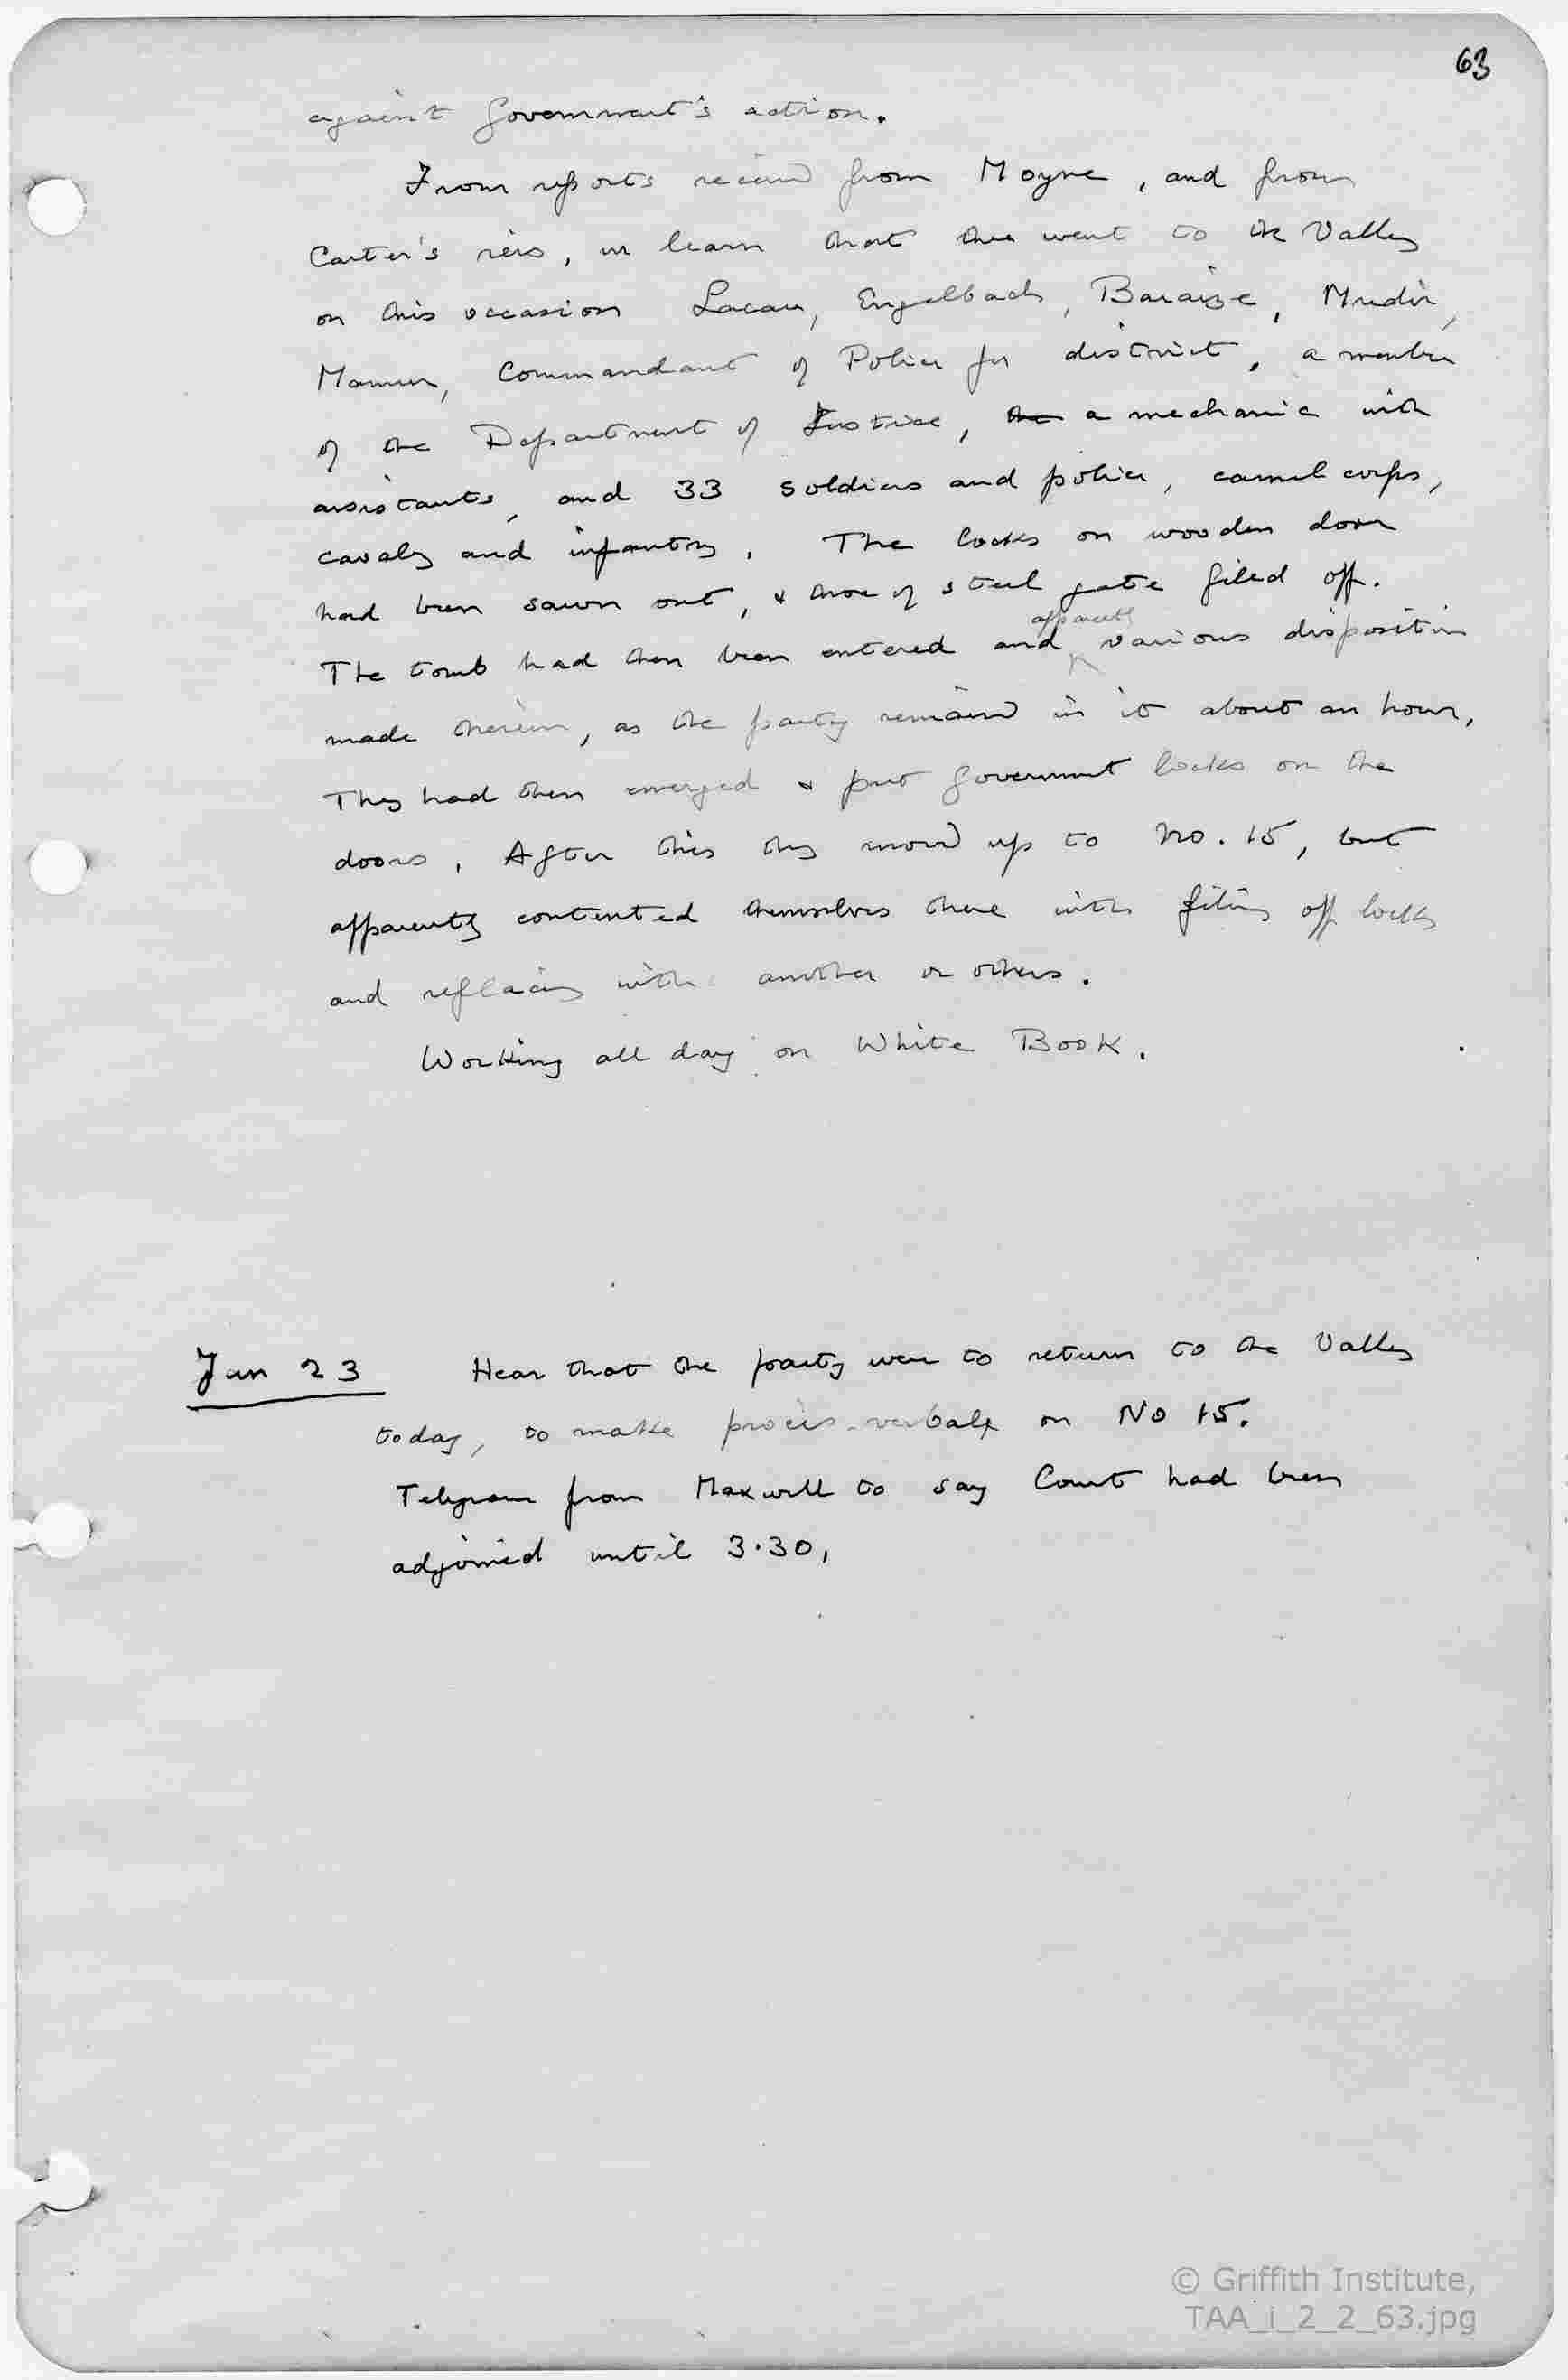 63
against Government's action.
From reports received from Moyne, and from
Carter's reis, we learn that there went to the Valley
on this occasion Lacau, Engelbach, Baraize, Mudir,
Mamur, Commandant of Police for district, a member
of the Department of Justice, the a mechanic with
assistants, and 33 soldiers and police, camel corps,
cavalry and infantry. The locks on wooden door
had been sawn out, & those of steel gate filed off.
apparently
The tomb had then been entered and various dispositions
made therein, as the party remained in it about an hour.
They had then emerged & put Government locks on the
doors. After this they moved up to No. 15, but
apparently contented themselves there with filing off locks
and replacing with another or others.
Working all day on White Book.
Jan 23 Hear that the party were to return to the Valley
today, to make procès-verbale on No 15.
Telegram from Maxwell to say Court had been
adjourned until 3.30,
© Griffith Institute,
TAA_i_2_2_63.jpg